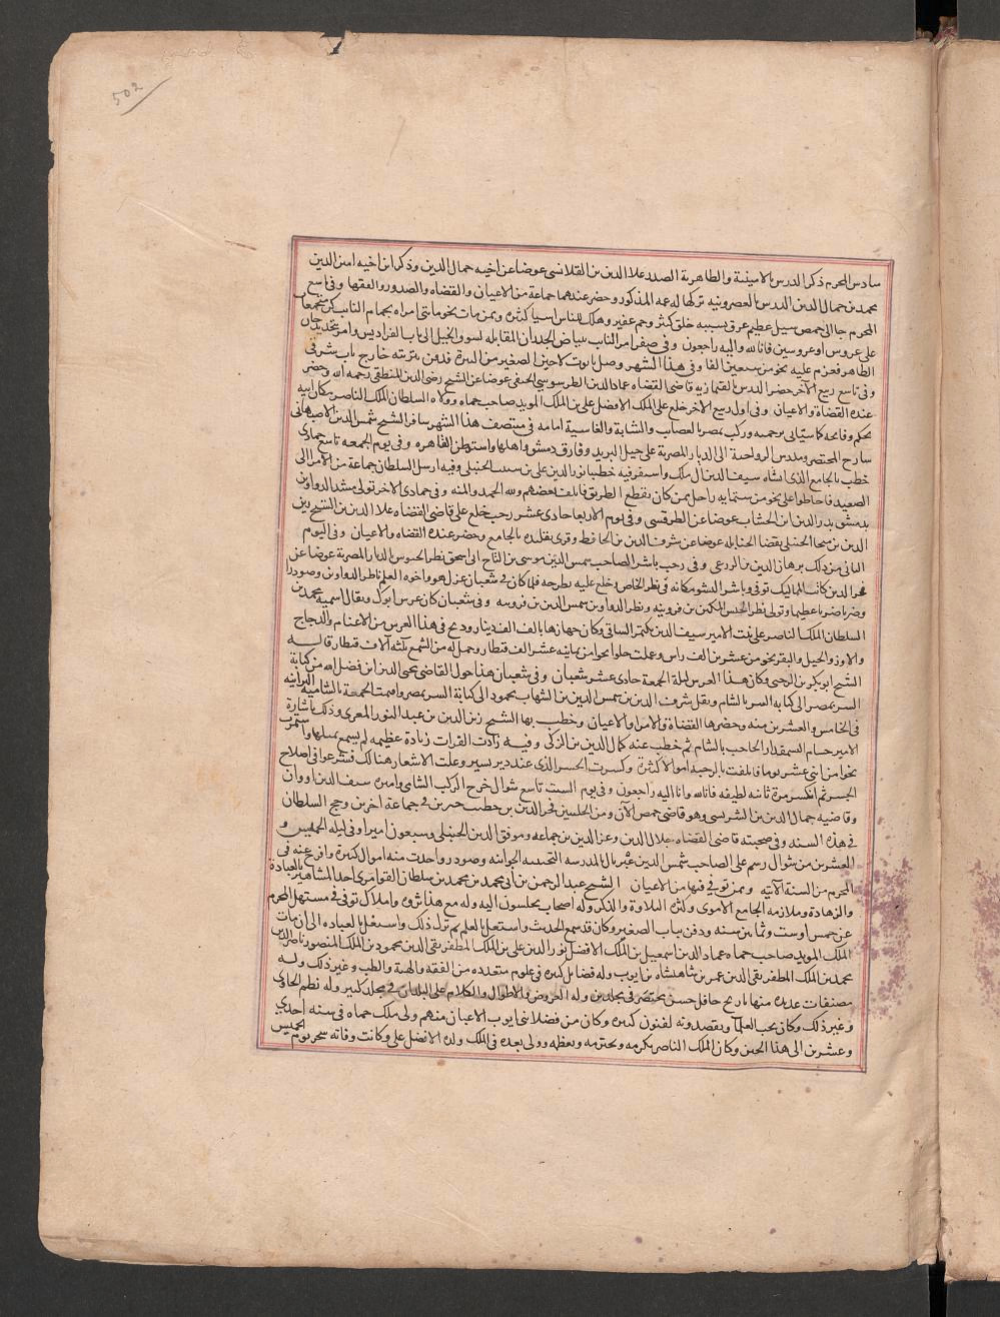 502
سادس المحرم ذكر الدرس بالامينية والظاهرية الصدر علاالدين بن القلانسي عوضا عن اخيه جمال الدين وذكر ابن اخيه امين الدين
محمد بن جمال الدين الدرس بالعصرونيه تركها له عمه المذكور وحضر عندهما جماعة من الاعيان والقضاه والصدور والفقها وفي تاسع
المحرم جا الى حمص سيل عظيم غرق بسببه خلق كثير وجم غفير وهلك للناس اشيا كثيره وممن مات نحو مائتي امراه بحمام النائب كن مجتمعات
على عروس او عروسين فانا لله وانا اليه راجعون وفي صفر امر النائب بتبياض الجدران المقابله لسوق الخيل الى باب الفراديس وامر بتجديد خان
الظاهر فغرم عليه نحو من سبعين الفا وفي هذا الشهر وصل تابوت لاجين الصغير من البيرة فدفن بتربته خارج باب شرقي
وفي تاسع ربيع الآخر حضر الدرس بالقيمازيه قاضي القضاه عماد الدين الطرسوسي الحنفي عوضا عن الشيخ رضي الدين المنطقي رحمه الله وحضر
عنده القضاة والاعيان وفي اول ربيع الآخر خلع على الملك الافضل علي بن الملك المويد صاحب حماه وولاه السلطان الملك الناصر مكان ابيه
بحكم وفاته كما سيأتي ترجمته وركب بمصر بالعصاب والشبابة والغاشية امامه في منتصف هذا الشهر سافر الشيخ شمس الدين الاصبهاني
شارح المختصر ومدرس الرواحية الى الديار المصرية على خيل البريد وفارق دمشق واهلها واستوطن القاهره وفي يوم الجمعه تاسع جمادى
خطب بالجامع الذي انشاه سيف الدين ال ملك واستقر فيه خطيبا نور الدين علي بن شبيب الحنبلي وفيه ارسل السلطان جماعة من الامرا الى
الصعيد فاحاطوا على نحو من ستمايه راجل ممن كان يقطع الطريق فاتلف بعضهم ولله الحمد والمنه وفي جمادى الاخر تولى مشد الدواوين
بدمشق بدر الدين ابن الخشاب عوضا عن الطرقسي وفي يوم الاربعا حادي عشر رجب خلع على قاضي القضاه علاالدين بن الشيخ زين
الدين بن منجا الحنبلي بقضا الحنابله عوضا عن شرف الدين بن الحافظ وقرئ تقليده بالجامع وحضر عنده القضاه والاعيان وفي اليوم
الثاني من ذلك برهان الدين بن الزرعي وفي رجب باشر الصاحب شمس الدين موسى بن التاج ابي اسحق نظر الجيوش بالديار المصرية عوضا عن
فخر الدين كاتب المماليك توفي وباشر النشو مكانه في نظر الخاص وخلع عليه بطرحه فلما كان في شعبان عزل هو واخوه العلم ناظر الدواوين وصودرا
وضربا ضربا عظيما وتولى نظر الجيش المكين بن قروينه ونظر الدواوين شمس الدين بن قروينه وفي شعبان كان عرس انوك ويقال اسمه محمد بن
السلطان الملك الناصر على بنت الامير سيف الدين بكتمر الساقي وكان جهازها بالف الف دينار وذبح في هذا العرس من الاغنام والدجاج
والاوز والخيل والبقر نحو من عشرين الف راس وعملت حلوا نحوا من ثمانية عشر الف قنطار وحمل له من الشمع ثلثة آلاف قنطار قاله
الشيخ ابو بكر بن الرحبي وكان هذا العرس ليلة الجمعة حادي عشر شعبان وفي شعبان هذا حول القاضي محيي الدين ابن فضل الله من كتابة
السر بمصر الى كتابه السر بالشام ونقل شرف الدين بن شمس الدين بن الشهاب محمود الى كتابة السر بمصر واقيمت الجمعة بالشاميه البرانيه
في الخامس والعشرين منه وحضرها القضاة والامرا والاعيان وخطب بها الشيخ زين الدين بن عبد النور المغربي وذلك باشارة
الامير حسام الدين بشمقدار الحاجب بالشام ثم خطب عنه كمال الدين بن الزكي وفيه زادت الفرات زيادة عظيمه لم يسمع بمثلها واستمرت
نحوا من اثني عشر يوما فاتلفت بالرحبه اموالا كثيرة وكسرت الجسر الذي عند دير بسير وغلت الاسعار هنالك فشرعوا في اصلاح
الجسر ثم انكسر مرة ثانيه لطيفه فانا لله وانا اليه راجعون وفي يوم السبت تاسع شوال خرج الركب الشامي واميره سيف الدين اوزان
وقاضيه جمال الدين بن الشريشي وهو قاضي حمص الآن ومن الحلبيين فخر الدين بن خطيب جبرين في جماعة آخرين وحج السلطان
في هذه السنه وفي صحبته قاضي القضاه جلال الدين وعز الدين بن جماعه وموفق الدين الحنبلي وسبعون اميرا وفي ليله الخميس
العشرين من شوال رسم على الصاحب شمس الدين غبريال بالمدرسه النجيبيه الجوانيه وصودر واخذت منه اموال كثيرة وافرج عنه في
المحرم من السنة الآتيه وممن توفي فيها من الاعيان الشيخ عبد الرحمن بن ابي محمد بن محمد بن سلطان القرامزي احد المشاهير بالعبادة
والزهادة وملازمه الجامع الاموي وكثرة التلاوة والذكر وله اصحاب يجلسون اليه وله مع هذا ثروه واملاك توفي في مستهل المحرم
عن خمس او ست وثمانين سنه ودفن بباب الصغير وكان قد سمع الحديث واشتغل بالعلم ثم ترك ذلك واشتغل بالعباده الى ان مات
الملك المويد صاحب حماه عماد الدين اسمعيل بن الملك الافضل نور الدين علي بن الملك المظفر تقي الدين محمود بن الملك المنصور ناصر الدين
محمد بن الملك المظفر تقي الدين عمر بن شاهنشاه بن ايوب وله فضايل كثيره في علوم متعدده من الفقه والهيئة والطب وغير ذلك وله
مصنفات عديده منها تاريخ حافل حسن مختصر في مجلدين وله العروض والاطوال والكلام على البلدان في مجلد كبير وله نظم الحاوي
وغير ذلك وكان يحب العلما ويقصدونه لفنون كثيره وكان من فضلا بني ايوب الاعيان منهم ولي ملك حماه في سنه احدى
وعشرين الى هذا الحين وكان الملك الناصر يكرمه ويحترمه ويعظمه وولي بعده في الملك ولده الافضل علي وكانت وفاته سحر يوم الخميس